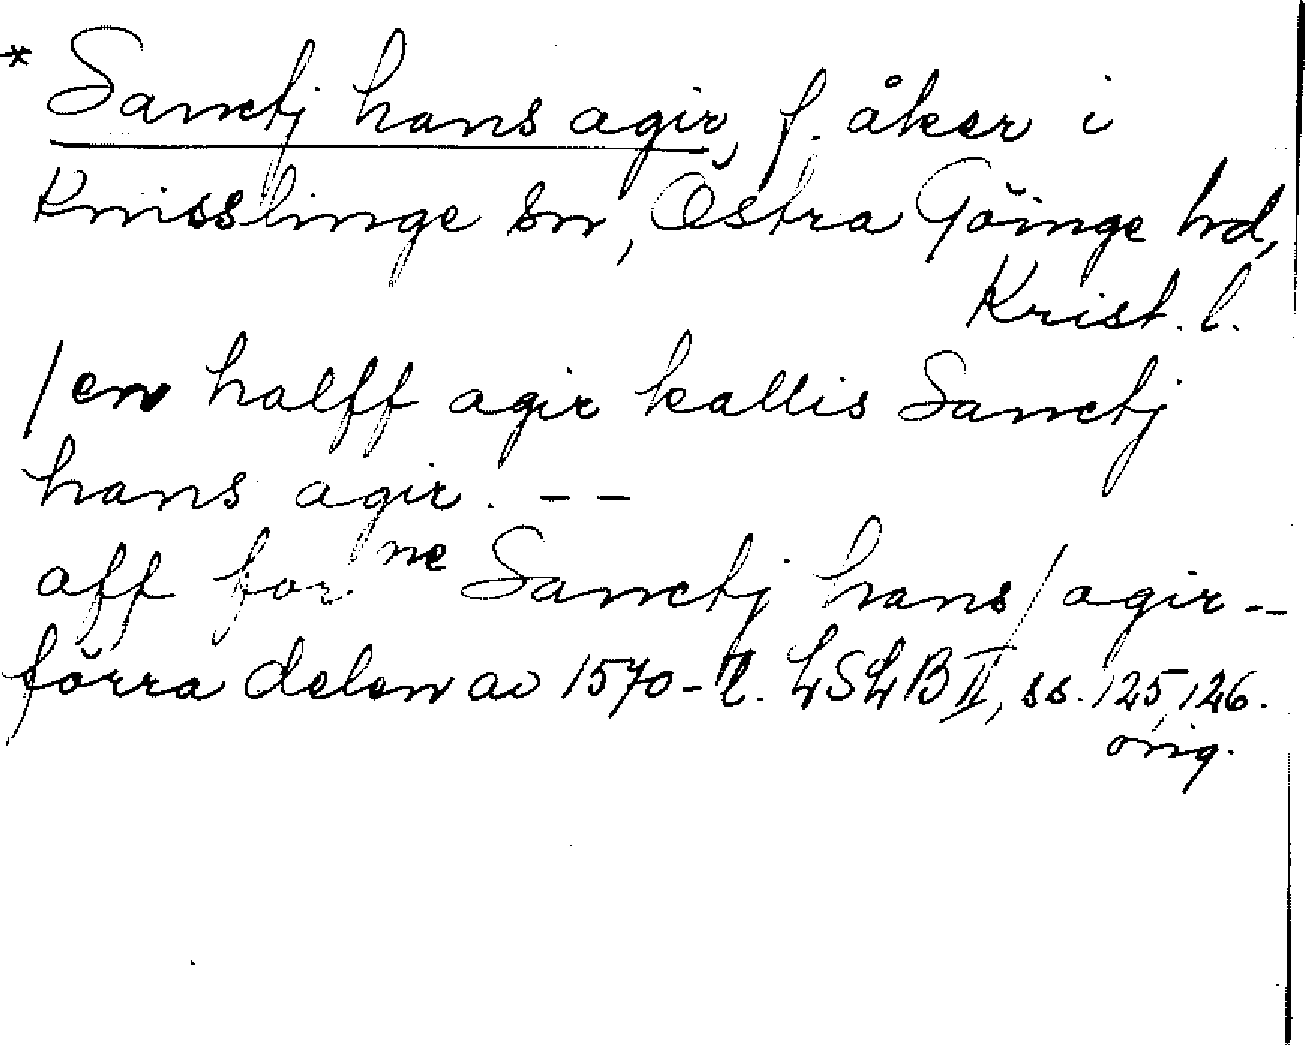 * Sanctj hans agir, f. åker i
Knisslinge sn, Östra Göinge hd,
Krist. l.
/en halff agir kallis Sanctj
hans agir. --
aff for ne Sanctj hans/agir --
förra delen av 1570-t. LSLB II, ss. 125, 126.
orig.